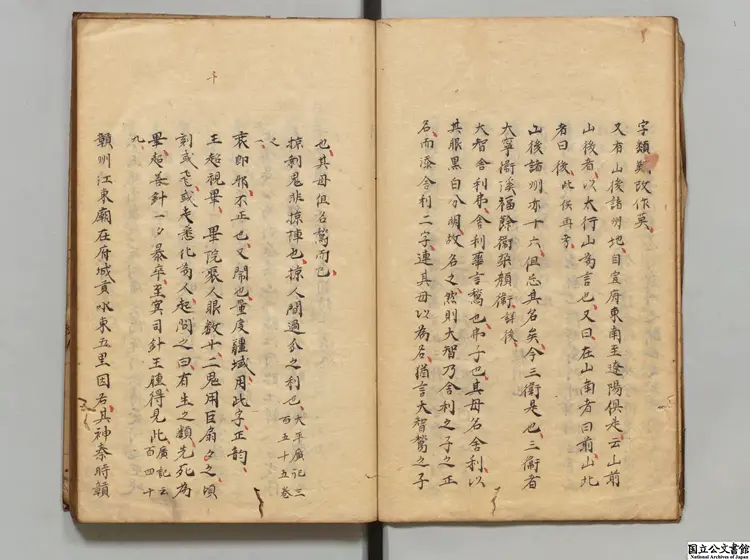 字類數改作莫
又有山後諸州地自宣府東南至遼陽俱是云山前
山後者以太行山為言也又曰在山南者曰前山北
者曰後此侯再考
山後諸州亦十六但忘其名矣今三衛是也三衛者
大寧衛溪福餘衛朶顏衛詳後
大智舍利弗舍利華言鶖也弗子也其母名舍利以
其眼黑白分明故名之然則大智乃舍利之子之正
名而添舍利二字連其母以為名猶言大智鶖之子
也其母但名鶖而已
掠剩鬼非掠陣也掠人間過分之利也太平廣記三
百五十五卷
之
衺即邪不正也又閒也量度疆域用此字正韵
王超視畢 畢院聚人眼數十二鬼用巨扇夕之頃
刻或飛或走悉化為人超問之曰有生之類先死為
畢超善針一夕暴卒至冥司針王腫得見此廣記云
百四十
九
贛州江東廟在府城貢水東五里因石其神秦時贛
国立公文書館
National Archives of Japan